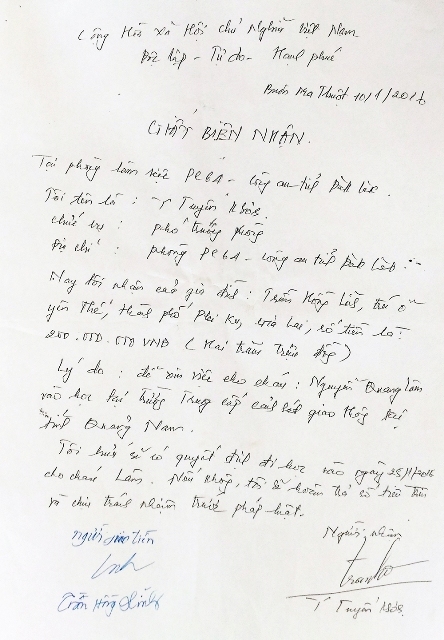 Cộng Hòa xã Hội chủ Nghĩa Việt Nam
Độc lập - Tự do - Hạnh phúc
Buôn Ma Thuột 10/1/2016
GIẤY BIÊN NHẬN.
Tại phòng làm việc PC81 - công an tỉnh Đăk Lăk.
Tôi tên là : Y Tuyên Ksơr.
chức vụ : phó trưởng phòng
Địa chỉ : phòng PC81 - công an tỉnh Đăk Lăk.
Nay tôi nhận của gia đình : Trần Hồng, trú ở
yên Thế, Thành phố Plei Ku, Gia Lai, số tiền là:
200.000.000 VNĐ ( Hai trăm triệu đồng )
Lý do : để xin việc cho cháu : Nguyễn Quang Lâm
vào học tại trường Trung cấp cảnh sát giao thông tại
tỉnh Quảng Nam.
Tôi hứa sẽ có quyết định đi học vào ngày 25/1/2016
cho cháu Lâm. Nếu không, tôi sẽ hoàn trả số tiền trên
và chịu trách nhiệm trước pháp luật.
Người giao tiền
Người nhận
Trần Hồng
Y Tuyên Ksơr